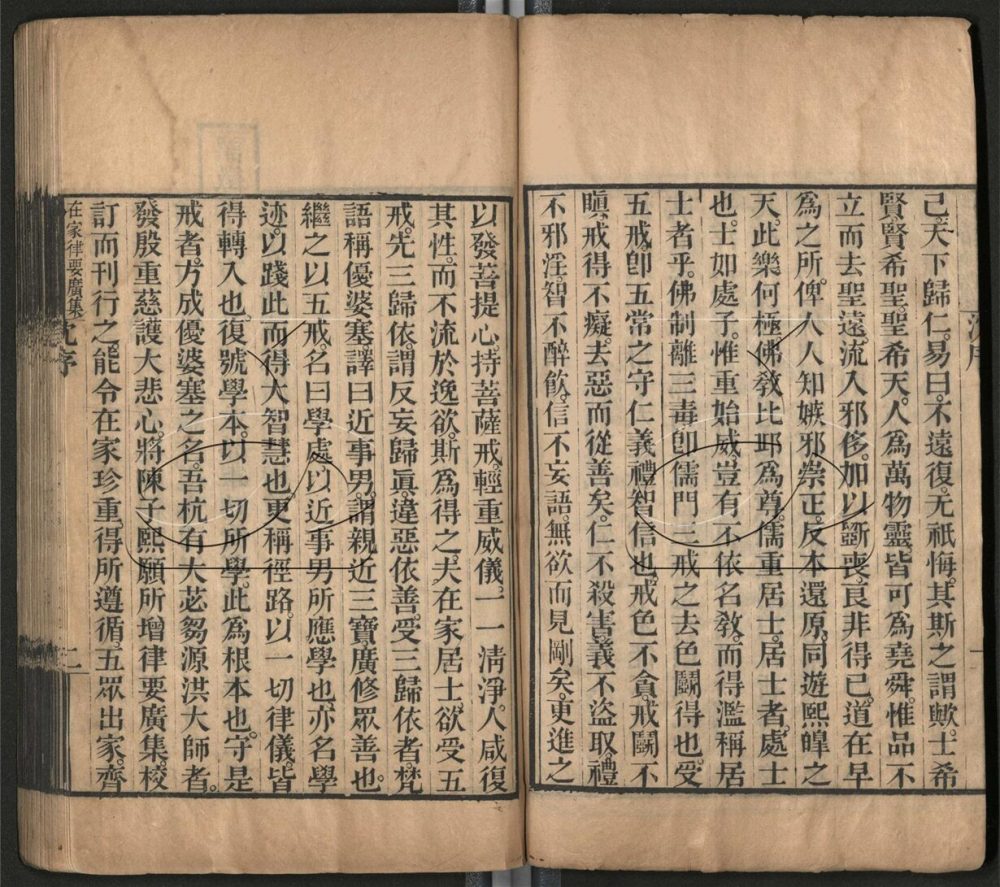 己。天下歸仁。易曰。不遠復。无祇悔。其斯之謂歟。士希
賢。賢希聖。聖希天。人爲萬物靈。皆可爲堯舜。惟品不
立而去聖遠。流入邪侈。加以斵喪。良非得已。道在早
爲之所。俾人人知嫉邪崇正。反本還原。同遊熙皥之
天。此樂何極。佛敎比耶爲尊。儒重居士。居士者。處士
也。士如處子。惟重始威。豈有不依名敎。而得濫稱居
士者乎。佛制離三毒。卽儒門三戒之去色鬭得也。受
五戒。卽五常之守仁義禮智信也。戒色不貪。戒鬭不
瞋。戒得不癡。去惡而從善矣。仁不殺害。義不盜取。禮
不邪淫。智不醉飮。信不妄語。無欲而見剛矣。更進之
以發菩提心。持菩薩戒。輕重威儀。一一淸淨。人咸復
其性。而不流於逸欲。斯爲得之夫。在家居士。欲受五
戒。先三歸依。謂反妄歸眞。違惡依善。受三歸依者。梵
語稱優婆塞。譯曰近事男。謂親近三寶。廣修眾善也。
繼之以五戒。名曰學處。以近事男所應學也。亦名學
迹。以踐此而得大智慧也。更稱徑路。以一切律儀。皆
得轉入也。復號學本。以一切所學。此爲根本也。守是
戒者。方成優婆塞之名。吾杭有大苾芻源洪大師者。
發殷重慈護大悲心。將陳子熙願所增律要廣集。校
訂而刊行之。能令在家珍重。得所遵循。五眾出家。齊
在家律要廣集 沈序 二